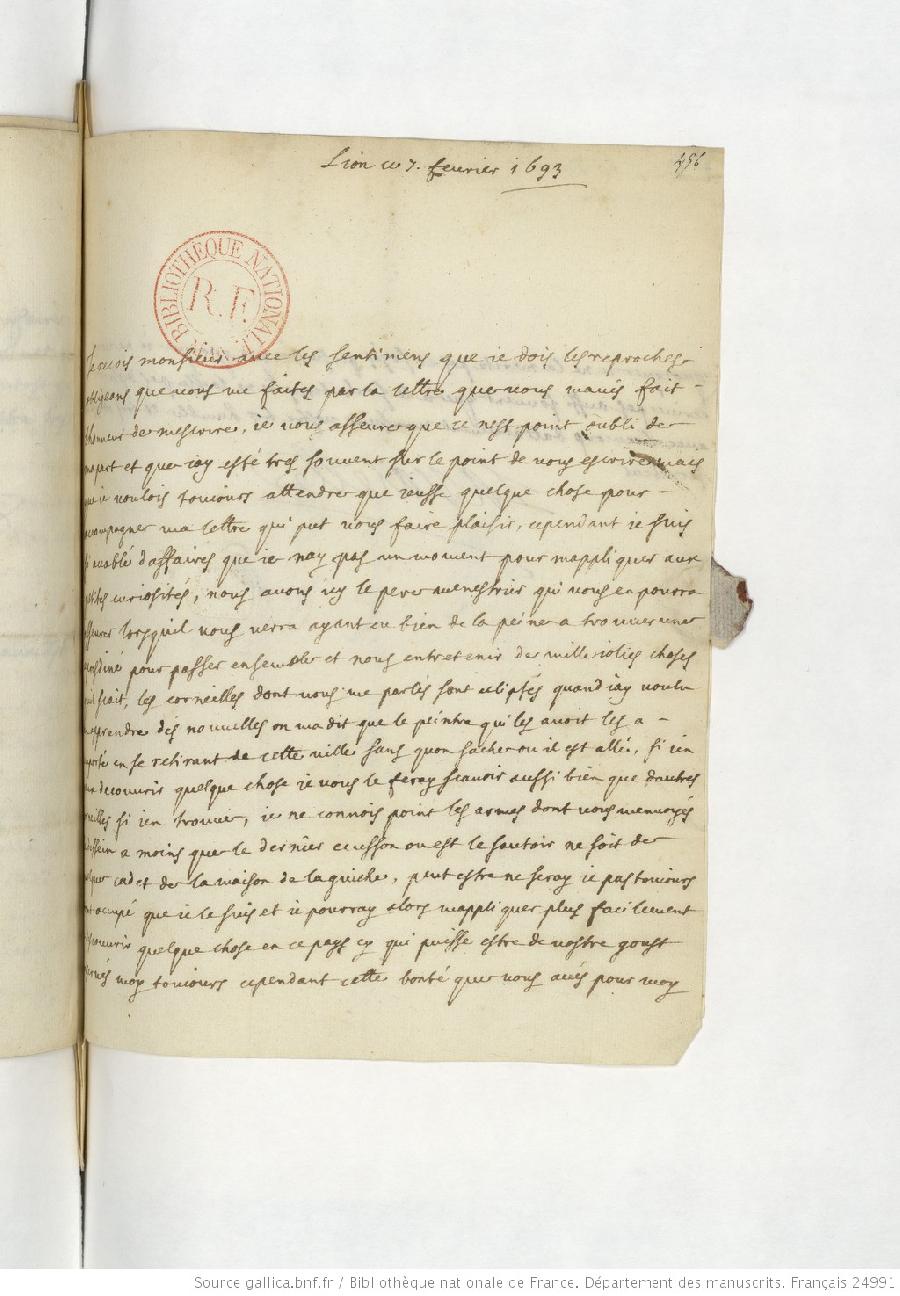 Lion ce 7. feurier 1693
456
BIBLIOTHÈQUE NATIONALE
R.F.
Je reçois monsieur auec les sentimens que ie dois les reproches
obligeans que vous me faites par la lettre que vous maués fait
lhonneur de mescrire, ie vous asseure que ce nest point oubli de
ma part et que iay esté tres souuent sur le point de vous escrire mais
que ie voulois tousiours attendre que ieusse quelque chose pour
acompagner ma lettre qui put vous faire plaisir, cependant ie suis
si acablé d'affaires que ie nay pas un moment pour mappliquer aux
petites curiosités, nous auons icy le pere menestrier qui vous en pourra
asseurer lorsquil vous verra ayant eu bien de la peine a trouuer une
apresdiné pour passer ensemble et nous entretenir de mille iolies choses
quil sait, les corneilles dont vous me parlés sont eclipsés quand iay voulu
aprendre des nouuelles on ma dit que le peintre qui les auoit les a
emporté en se retirant de cette ville sans quon sache ou il est allé, si ien
puis decouurir quelque chose ie vous le feray scauoir aussi bien que dautres
corneilles si ien trouue, ie ne connois point les armes dont vous menuoyés
le dessein a moins que le dernier ecusson ou est le sautoir ne soit de
quelque cadet de la maison de la guiche, peut estre ne seray ie pas tousiours
tant ocupé que ie le suis et ie pourray alors mappliquer plus facilement
a decouurir quelque chose en ce pays cy qui puisse estre de vostre goust
conserués moy tousiours cependant cette bonté que vous aués pour moy
Source gallica.bnf.fr / Bibliothèque nationale de France. Département des manuscrits. Français 24991